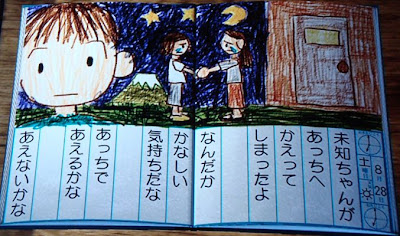 8月28日
土曜日
未知ちゃんが
あっちへ
かえって
しまったよ
なんだか
かなしい
気持ちだな
あっちで
あえるかな
あえないかな